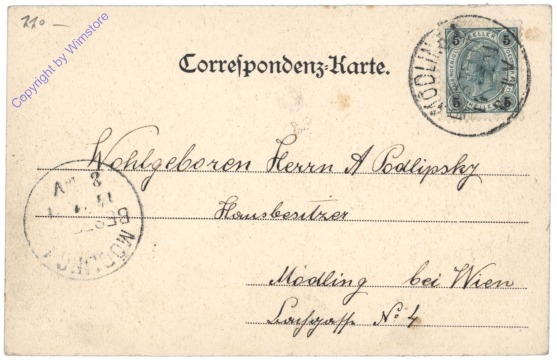 220.-
Copyright by Wimstore
Correspondenz-Karte.
MÖDLING
5 5
5 5
Wohlgeboren Herrn A Podlipsky
Hausbesitzer
Mödling bei Wien
No 4
MÖDLING